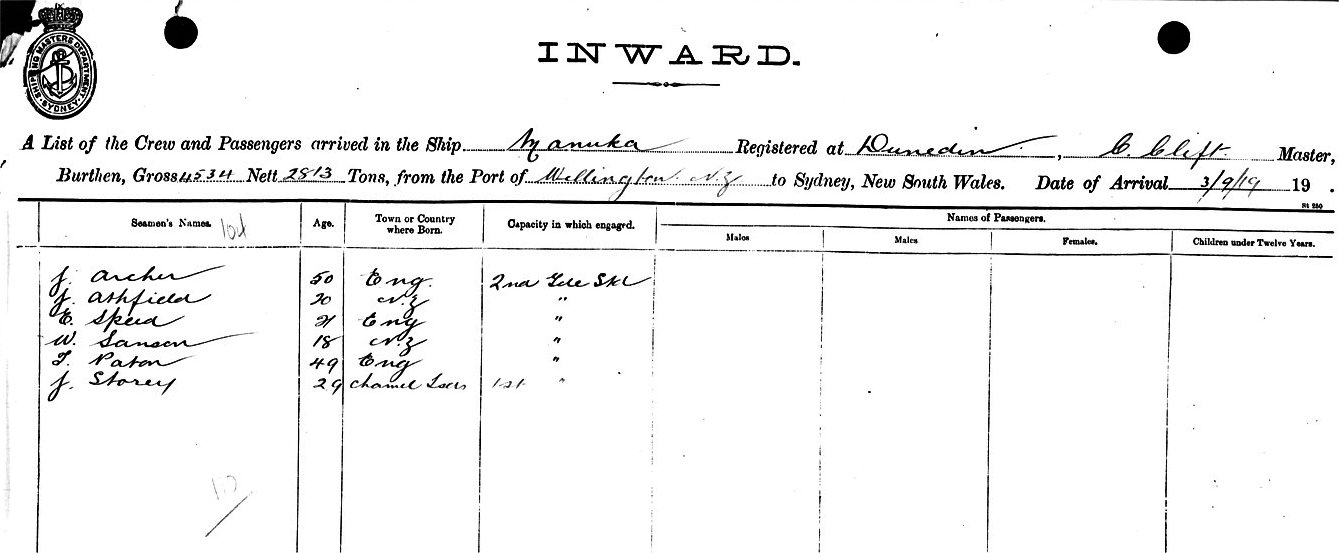 SHIPPING MASTERS DEPARTMENT. SYDNEY
INWARD.
A List of the Crew and Passengers arrived in the Ship Manuka Registered at Dunedin, C. Clift. Master,
Burthen, Gross 4534 Nett 2813 Tons, from the Port of Wellington N.Z to Sydney, New South Wales. Date of Arrival 3/9/19 19 .
St 250
Seamen's Names. 104 Age. Town or Country where Born. Capacity in which engaged. Names of Passengers.
Males Males Females. Children under Twelve Years.
J. Archer 50 Eng. 2nd Sal
J. Ashfield 20 N.Z "
E. Speed 21 Eng "
W. Sanson 18 N.Z "
T. Paton 49 Eng "
J. Storey 29 Channel Isles 1st "